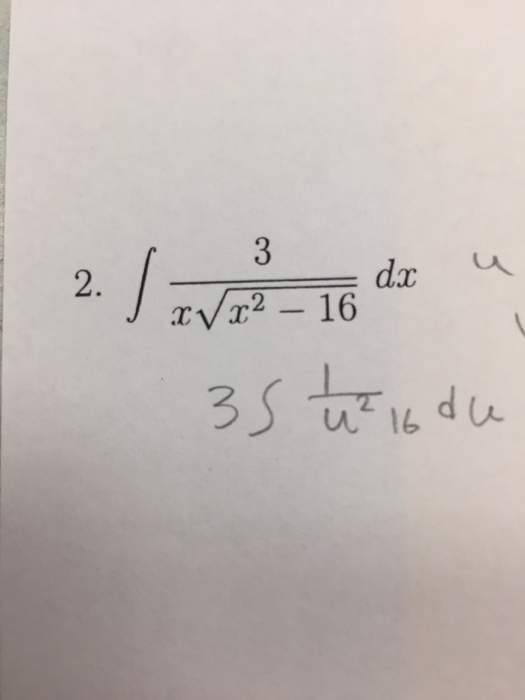 2. ∫ 3/(x√(x² − 16)) dx u
3 ∫ 1/(u² 16) du